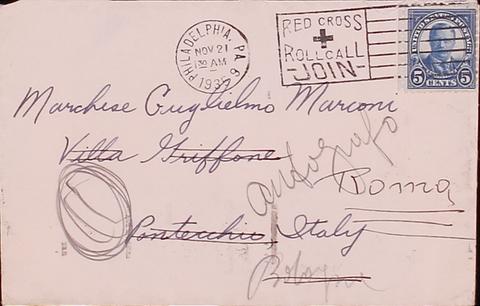 PHILADELPHIA, PA.
NOV 21
RED CROSS
ROLL CALL
JOIN
5 CENTS 5
Marchese Guglielmo Marconi
Villa Griffone
autografo
Roma
Pontecchio, Italy
Bologna